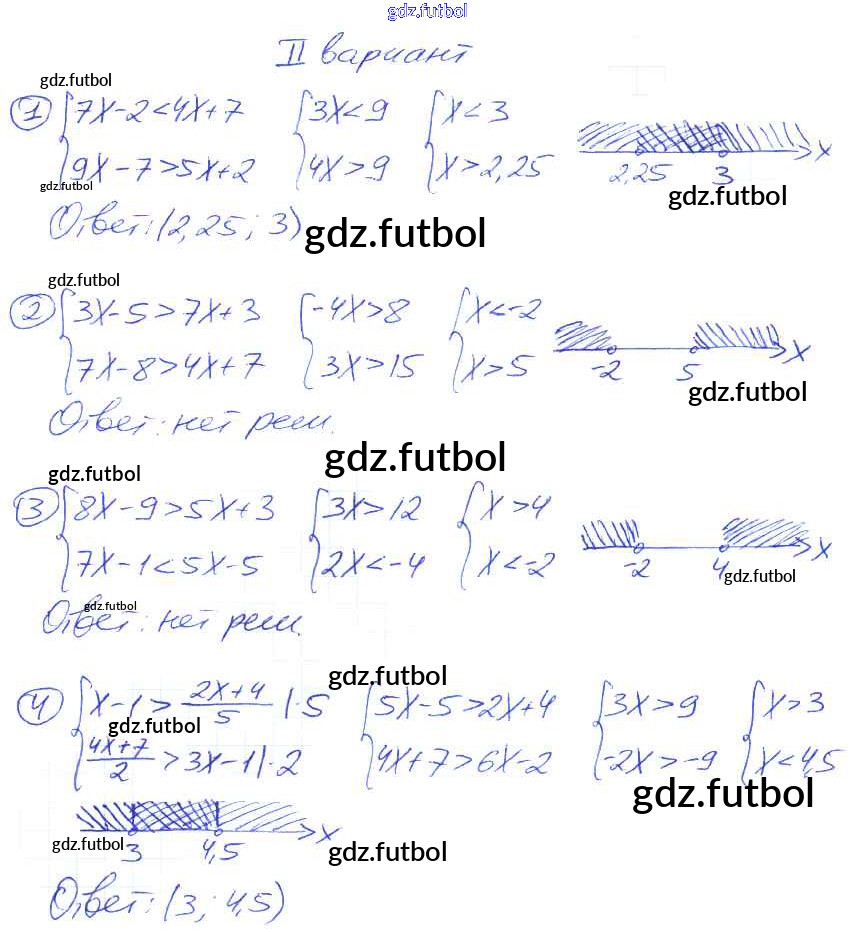 gdz.futbol
II вариант
gdz.futbol
1 {7x-2<4x+7 {3x<9 {x<3
9x-7>5x+2 4x>9 x>2,25 2,25 3 x
gdz.futbol gdz.futbol
Ответ: (2,25; 3)
gdz.futbol
gdz.futbol
2 {3x-5>7x+3 {-4x>8 {x<-2
7x-8>4x+7 3x>15 x>5 -2 5 x
gdz.futbol
Ответ: нет реш.
gdz.futbol
gdz.futbol
3 {8x-9>5x+3 {3x>12 {x>4
7x-1<5x-5 2x<-4 x<-2 -2 4 x
gdz.futbol
gdz.futbol
Ответ: нет реш.
gdz.futbol
4 {x-1>(2x+4)/5 |·5 {5x-5>2x+4 {3x>9 {x>3
gdz.futbol
(4x+7)/2>3x-1|·2 4x+7>6x-2 -2x>-9 x<4,5
gdz.futbol
3 4,5 x
gdz.futbol gdz.futbol
Ответ: (3; 4,5)